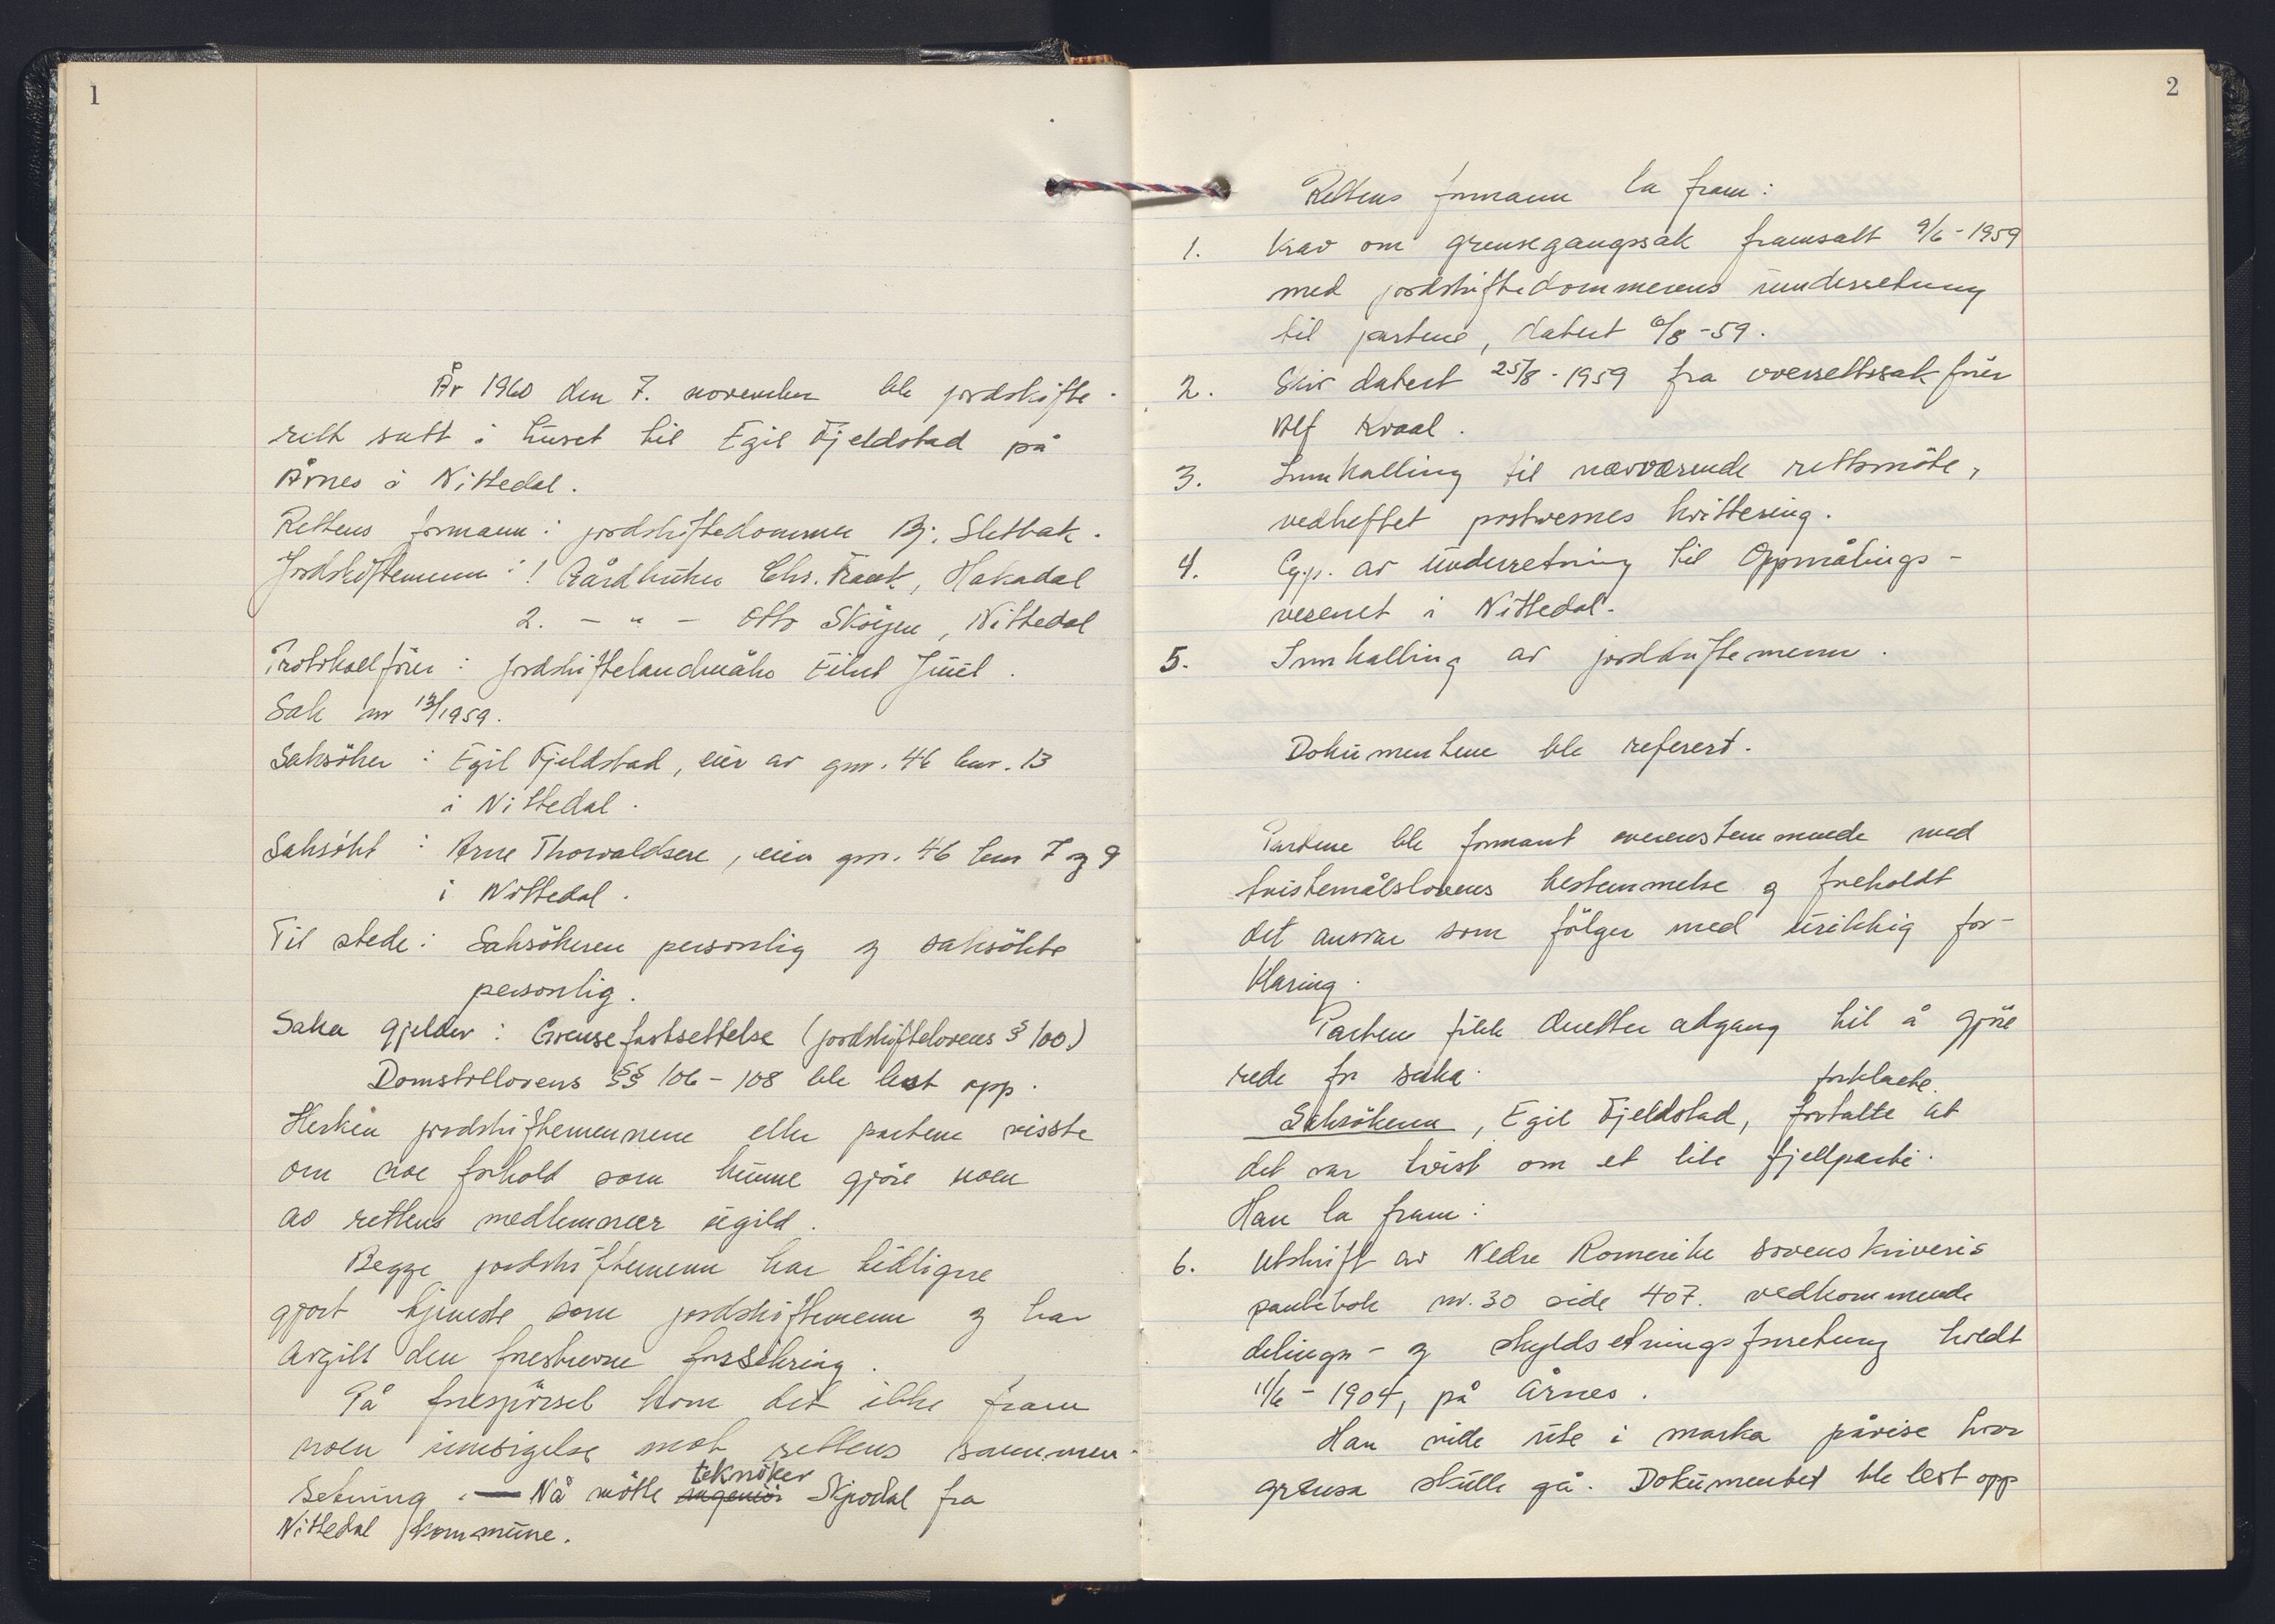 1
År 1960 den 7. november ble jordskifte-
rett satt i huset til Egil Fjeldstad på
Årnes i Nittedal.
Rettens formann: jordskiftedommer Bj. Sletbak.
Jordskiftemenn: 1 Gårdbruker Chr. Haak, Hakadal
2. - " - Otto Skøyen, Nittedal
Protokollfører: jordskiftelandmåler Eilert Juul.
Sak nr 13/1959.
Saksøker: Egil Fjeldstad, eier av gnr. 46 bnr. 13
i Nittedal.
Saksøkt: Arne Thorvaldsen, eier gnr. 46 bnr 7 og 9
i Nittedal.
Til stede: Saksøkeren personlig og saksøkte
personlig.
Saka gjelder: Grensefastsettelse (jordskiftelovens § 100)
Domstollovens §§ 106 - 108 ble lest opp.
Herken jordskiftemennene eller partene visste
om noe forhold som kunne gjøre noen
av rettens medlemmer ugild.
Begge jordskiftemenn har tidligere
gjort tjeneste som jordskiftemenn og har
avgitt den foreskrevne forsikring.
På forespørsel kom det ikke fram
noen innsigelse mot rettens sammen-
setning. — Nå møtte ingeniør tekniker Skjodal fra
Nittedal kommune.
2
Rettens formann la fram:
1. Krav om grensegangssak framsatt 9/6-1959
med jordskiftedommerens underretning
til partene, datert 6/8-59.
2. Skiv datert 25/8-1959 fra overrettssakfører
Alf Kraal.
3. Innkalling til nærværende rettsmøte,
vedheftet postvesnes kvittering.
4. Gj.p. av underretning til Oppmålings-
vesenet i Nittedal.
5. Innkalling av jordskiftemenn.
Dokumentene ble referert.
Partene ble formant overenstemmende med
tvistemålslovens bestemmelse og foreholdt
det ansvar som følger med uriktig for-
klaring.
Partene fikk deretter adgang til å gjøre
rede for saka.
forklarte.
Saksøkeren, Egil Fjeldstad, fortalte at
det var tvist om et lite fjellparti.
Han la fram:
6. Utskrift av Nedre Romerike sorenskriveris
pantebok nr. 30 side 407. vedkommende
delings- og skyldsetningsforretning holdt
11/6-1904, på Årnes.
Han ville ute i marka påvise hvor
grensa skulle gå. Dokumentet ble lest opp